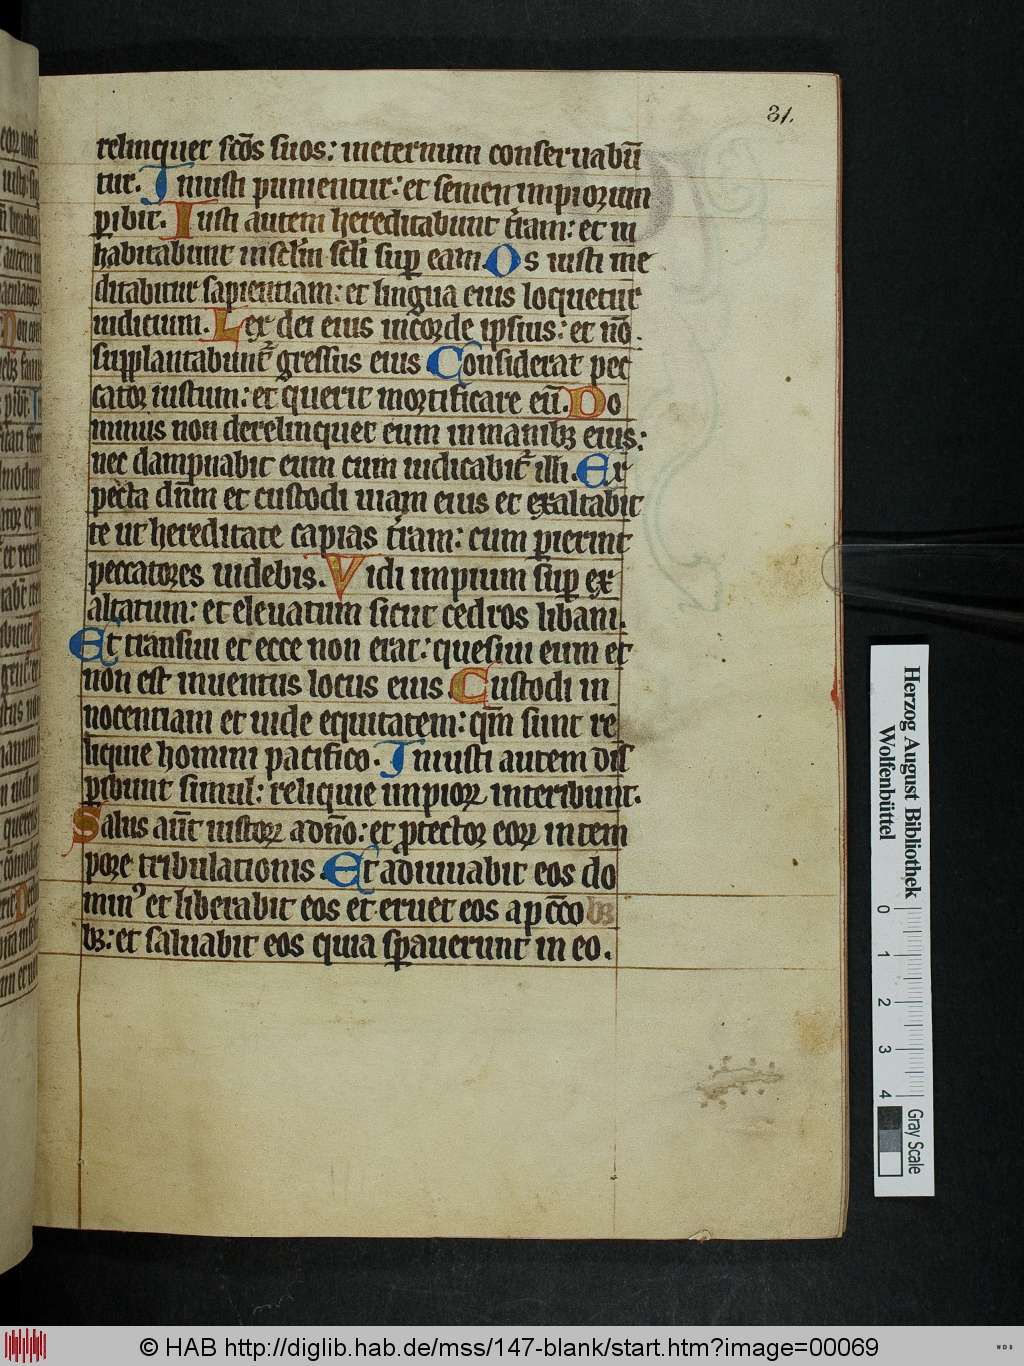 31.
relinquet sc̄os suos: ineternum conseruabū
tur. Iniusti punientur: et semen impiorum
ꝑibit. Iusti autem hereditabunt t̄ram: et in
habitabunt insclm̄ scli sup eam. Os iusti me
ditabitur sapientiam: et lingua eius loquetur
iudicium. Lex dei eius incorde ipsius: et nō
supplantabunt̄ gressus eius Considerat pec
cator iustum: et querit mortificare eū. Do
minus non derelinquet eum in manibꝫ eius:
nec dampnabit eum cum iudicabit̄ illi. Ex
pecta dn̄m et custodi uiam eius et exaltabit
te ut hereditate capias t̄ram: cum ꝑierint
peccatores uidebis. Vidi impium sup ex
altatum: et eleuatum sicut cedros libani.
Et transiui et ecce non erat: quesiui eum et
non est inuentus locus eius Custodi in
nocentiam et uide equitatem: qm̄ sunt re
liquie homini pacifico. Iniusti autem dis
ꝑibunt simul: reliquie impioꝝ interibunt.
Salus aūt iustoꝝ adn̄o: et ꝓtector eoꝝ in tem
pore tribulationis. Et adiuuabit eos do
minꝰ et liberabit eos et eruet eos a pc̄co
bꝫ: et saluabit eos quia sꝑauerunt in eo.
Herzog August Bibliothek
Wolfenbüttel
0 1 2 3 4
Gray Scale
© HAB http://diglib.hab.de/mss/147-blank/start.htm?image=00069